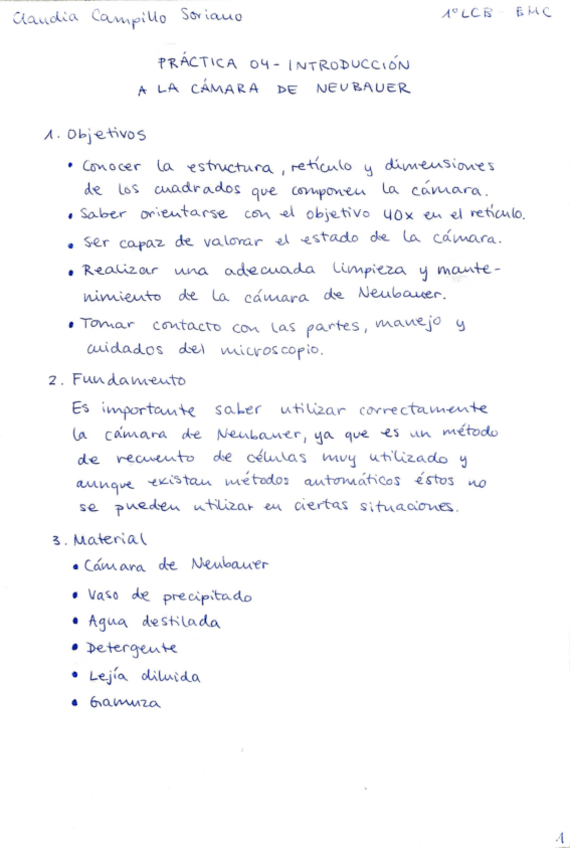 Claudia Campillo Soriano
1º LCB - BMC
PRÁCTICA 04 - INTRODUCCIÓN
A LA CÁMARA DE NEUBAUER
1. Objetivos
• Conocer la estructura, retículo y dimensiones
de los cuadrados que componen la cámara.
• Saber orientarse con el objetivo 40x en el retículo.
• Ser capaz de valorar el estado de la cámara.
• Realizar una adecuada limpieza y mante-
nimiento de la cámara de Neubauer.
• Tomar contacto con las partes, manejo y
cuidados del microscopio.
2. Fundamento
Es importante saber utilizar correctamente
la cámara de Neubauer, ya que es un método
de recuento de células muy utilizado y
aunque existan métodos automáticos éstos no
se pueden utilizar en ciertas situaciones.
3. Material
• Cámara de Neubauer
• Vaso de precipitado
• Agua destilada
• Detergente
• Lejía diluida
• Gamuza
1